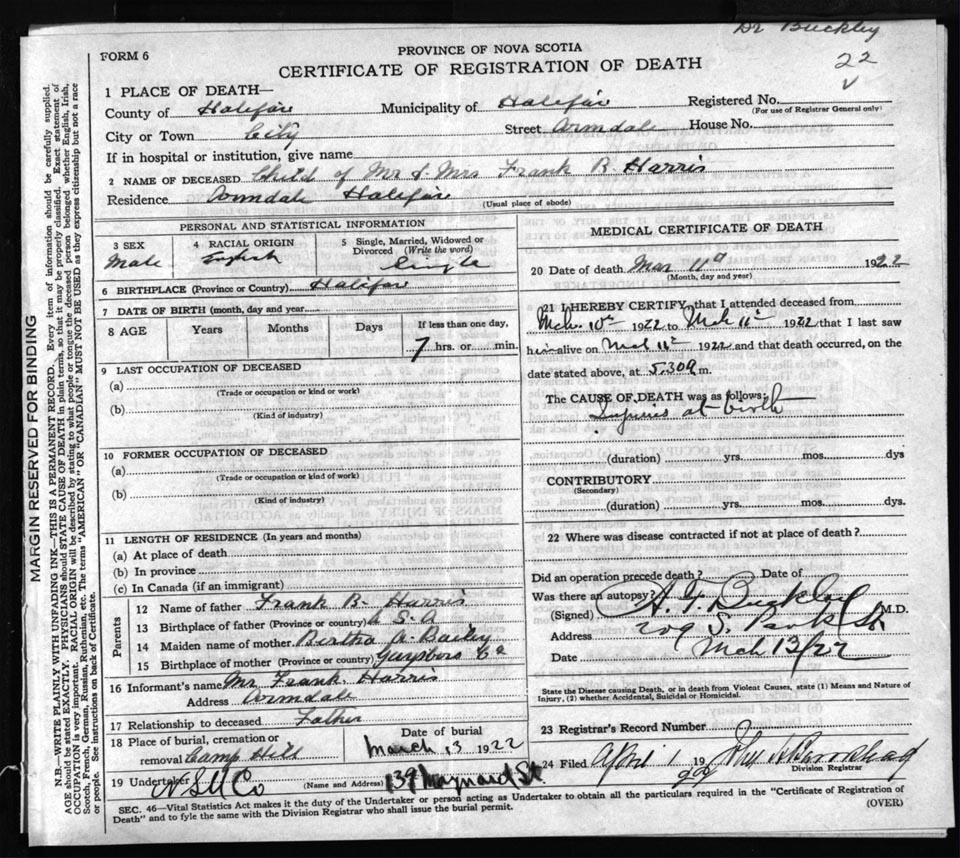 Dr Buckley
22
FORM 6
PROVINCE OF NOVA SCOTIA
CERTIFICATE OF REGISTRATION OF DEATH
1 PLACE OF DEATH—
County of Halifax Municipality of Halifax Registered No.
(For use of Registrar General only)
City or Town City Street Armdale House No.
If in hospital or institution, give name
2 NAME OF DECEASED Child of Mr & Mrs Frank B. Harris
Residence Armdale Halifax
(Usual place of abode)
PERSONAL AND STATISTICAL INFORMATION
3 SEX 4 RACIAL ORIGIN 5 Single, Married, Widowed or Divorced (Write the word)
Male English Single
6 BIRTHPLACE (Province or Country) Halifax
7 DATE OF BIRTH (month, day and year)
8 AGE Years Months Days If less than one day,
7 hrs. or min.
9 LAST OCCUPATION OF DECEASED
(a)
(Trade or occupation or kind or work)
(b)
(Kind of industry)
10 FORMER OCCUPATION OF DECEASED
(a)
(Trade or occupation or kind of work)
(b)
(Kind of industry)
11 LENGTH OF RESIDENCE (In years and months)
(a) At place of death
(b) In province
(c) In Canada (if an immigrant)
Parents
12 Name of father Frank B. Harris
13 Birthplace of father (Province or country) U S A
14 Maiden name of mother Bertha A. Bailey
15 Birthplace of mother (Province or country) Guysboro Co
16 Informant's name Mr Frank Harris
Address Armdale
17 Relationship to deceased Father
18 Place of burial, cremation or removal Camp Hill
Date of burial
March 13 1922
19 Undertaker N.S.U Co (Name and Address) 139 Maynard St.
MEDICAL CERTIFICATE OF DEATH
20 Date of death Mar 11 1922
(Month, day and year)
21 I HEREBY CERTIFY, that I attended deceased from
Mch. 10th 1922 to Mch 11th 1922 that I last saw
him alive on Mch 11th 1922 and that death occurred, on the
date stated above, at 5.30 a m.
The CAUSE OF DEATH was as follows:
Injuries at birth
(duration) yrs. mos. dys
CONTRIBUTORY
(Secondary)
(duration) yrs. mos. dys.
22 Where was disease contracted if not at place of death?
Did an operation precede death? Date of
Was there an autopsy?
(Signed) A. F. Buckley M.D.
Address 209 S. Park St
Date Mch 13/22
State the Disease causing Death, or in death from Violent Causes, state (1) Means and Nature of
Injury, (2) whether Accidental, Suicidal or Homicidal.
23 Registrar's Record Number
24 Filed April 1 1922
Division Registrar
SEC. 46—Vital Statistics Act makes it the duty of the Undertaker or person acting as Undertaker to obtain all the particulars required in the "Certificate of Registration of
Death" and to fyle the same with the Division Registrar who shall issue the burial permit.
(OVER)
MARGIN RESERVED FOR BINDING
N.B.—WRITE PLAINLY WITH UNFADING INK—THIS IS A PERMANENT RECORD. Every item of information should be carefully supplied.
AGE should be stated EXACTLY. PHYSICIANS should STATE CAUSE OF DEATH in plain terms, so that it may be properly classified. Exact statement of
OCCUPATION is very important. RACIAL ORIGIN will be described by stating to what people or tongue the deceased person belonged whether English, Irish,
Scotch, French, German, Russian, Ruthenian, etc. The terms "AMERICAN" OR "CANADIAN" MUST NOT BE USED as they express citizenship but not a race
or people. See instructions on back of Certificate.